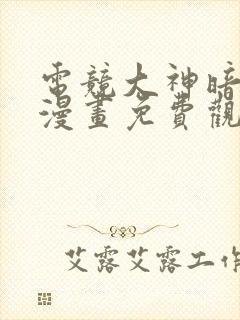 電競大神暗
漫畫免費觀
艾露艾露工作